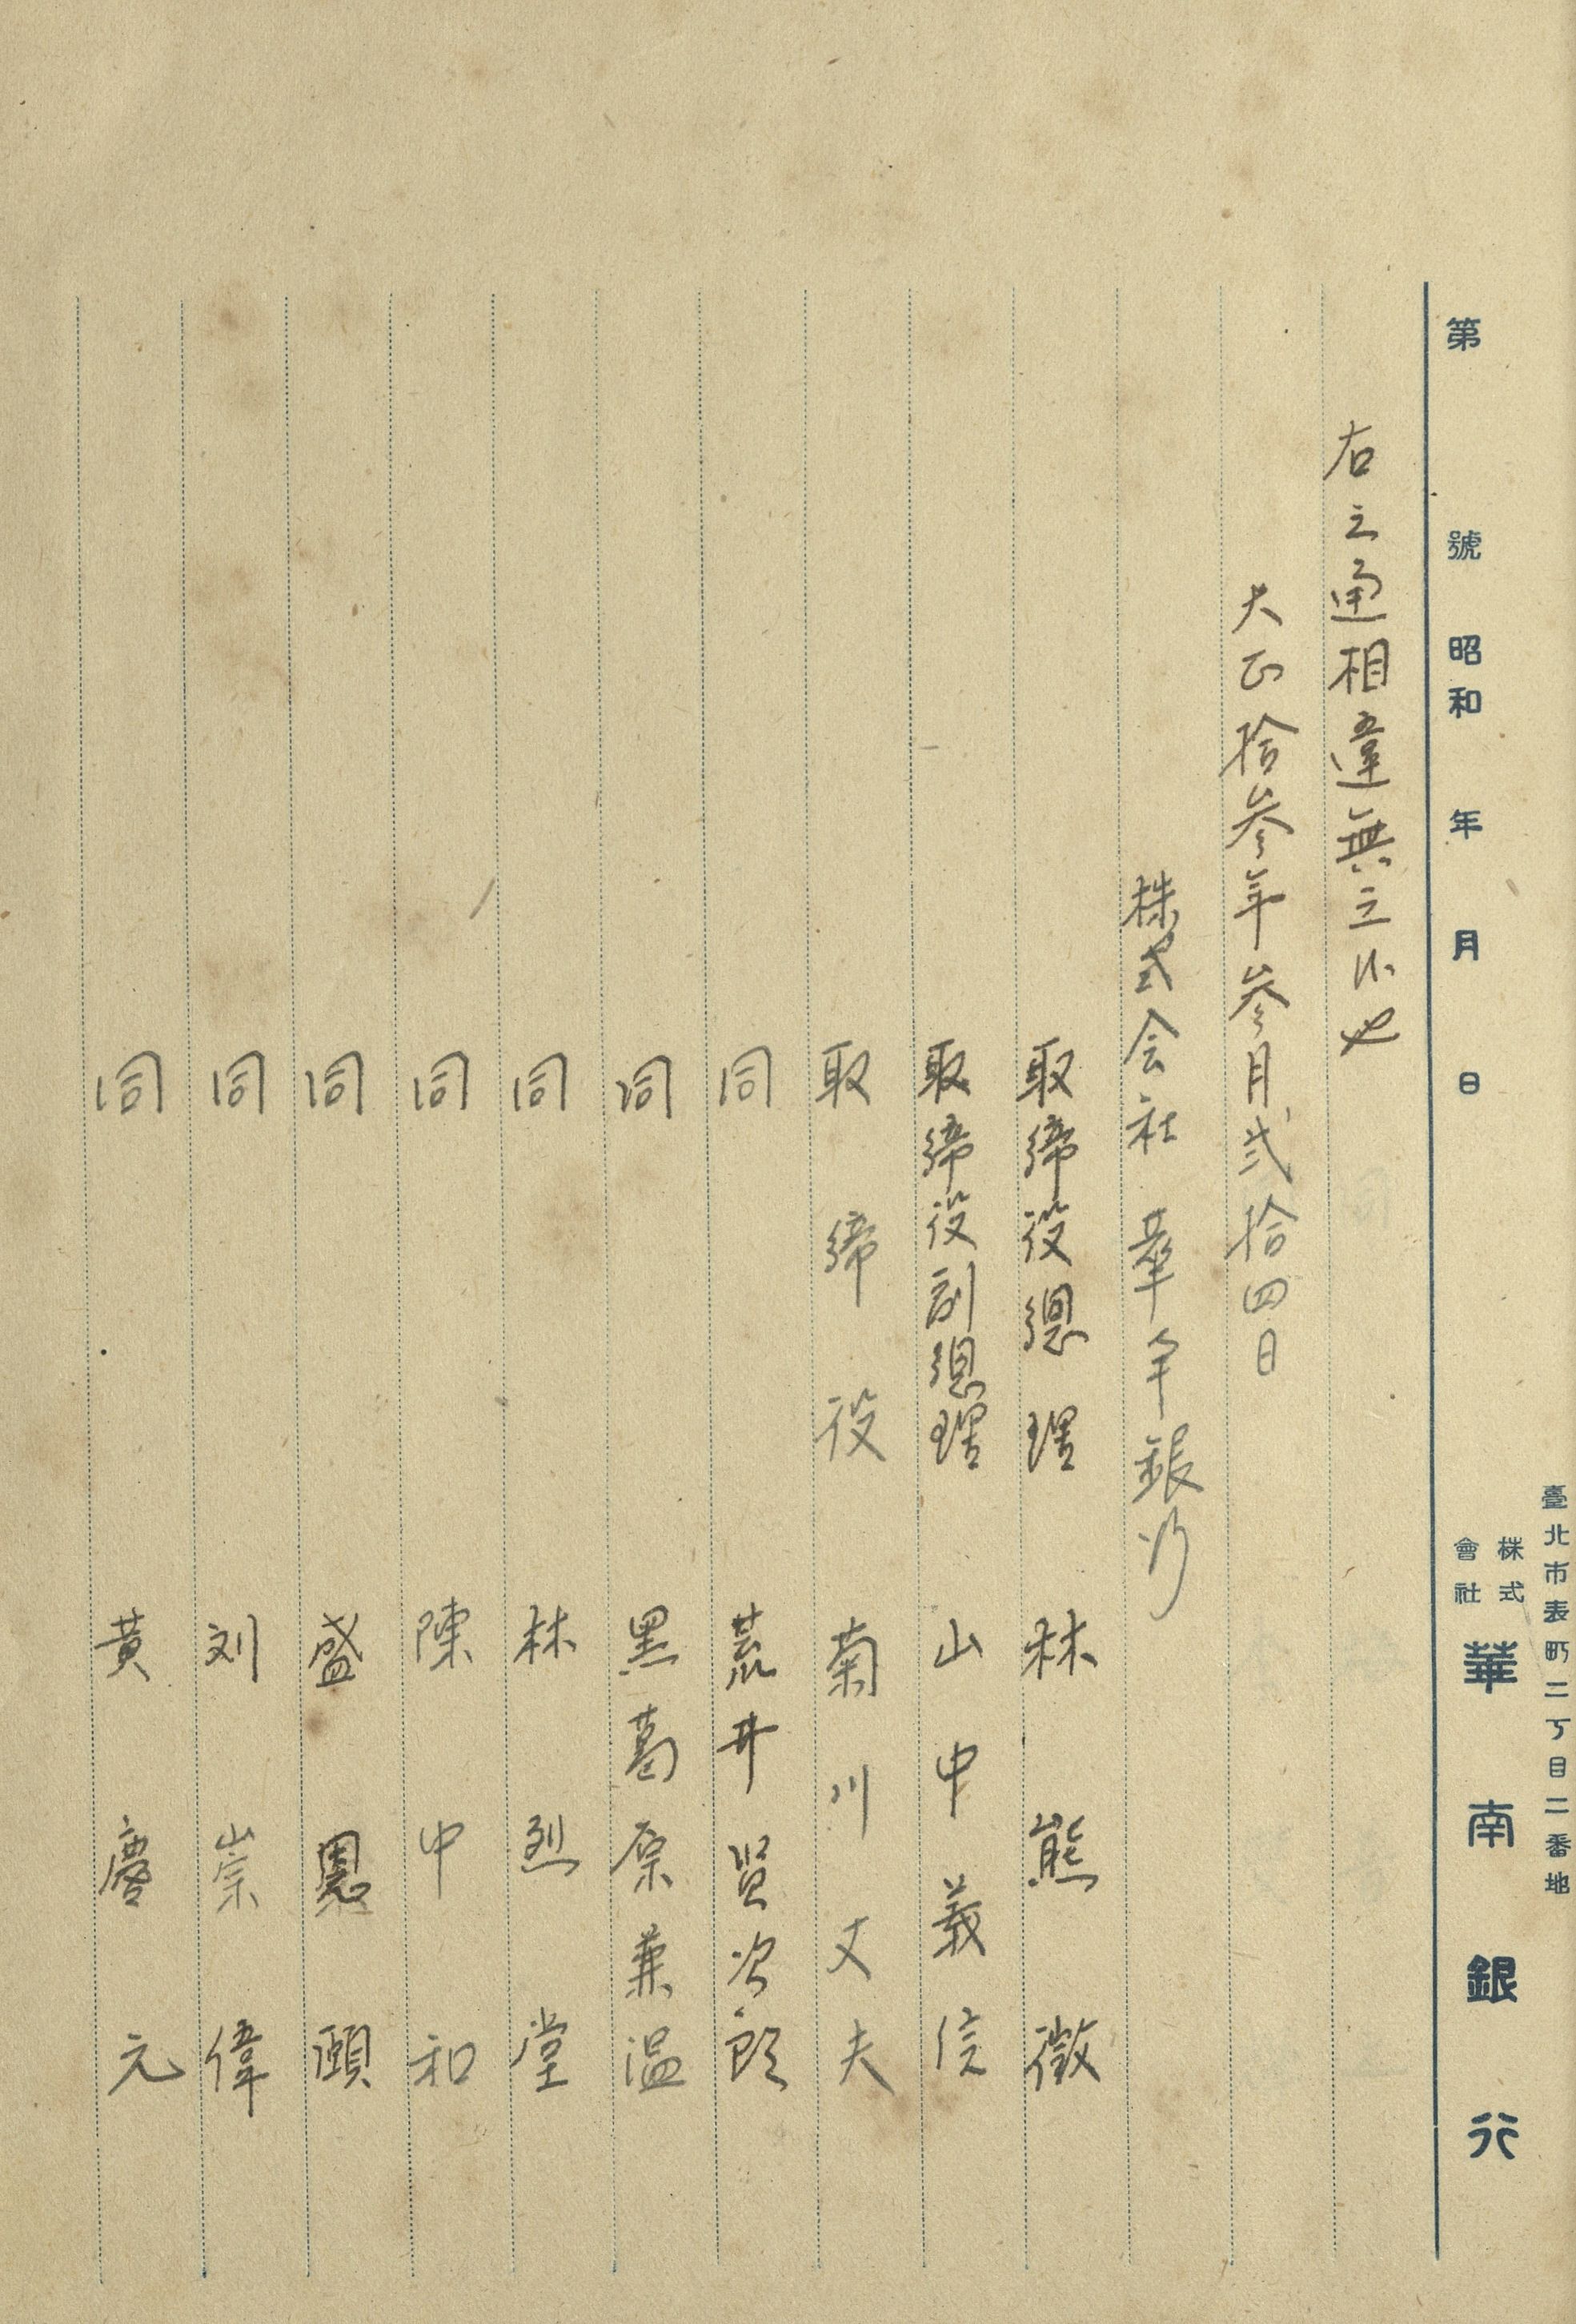 臺北市表町二丁目二番地
第 號 昭和 年 月 日 株式會社 華南銀行
右之通相違無之候也
大正拾参年参月弐拾四日
株式会社 華南銀行
取締役總理 林熊徴
取締役副總理 山中義信
取締役 菊川丈夫
同 荒井賢次郎
同 黒葛原兼温
同 林烈堂
同 陳中和
同 盛恩頤
同 刘崇偉
同 黄慶元